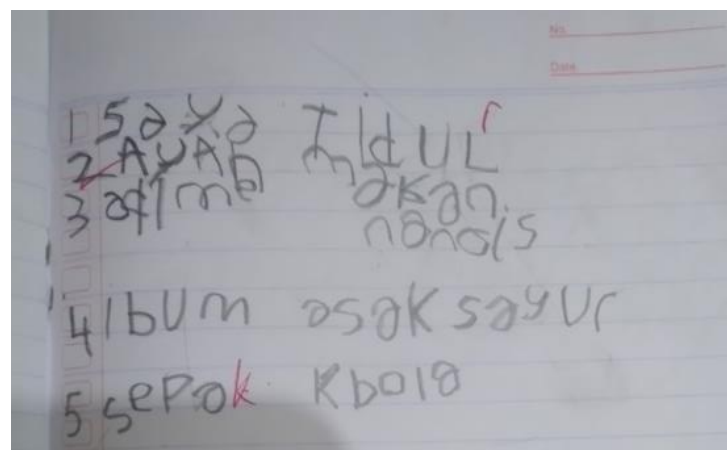 No.
Date.
1 Saya TidUL r
2 AyAh makan.
3 adime nanais
4 IbUm asak sayur
5 Sepak kbola